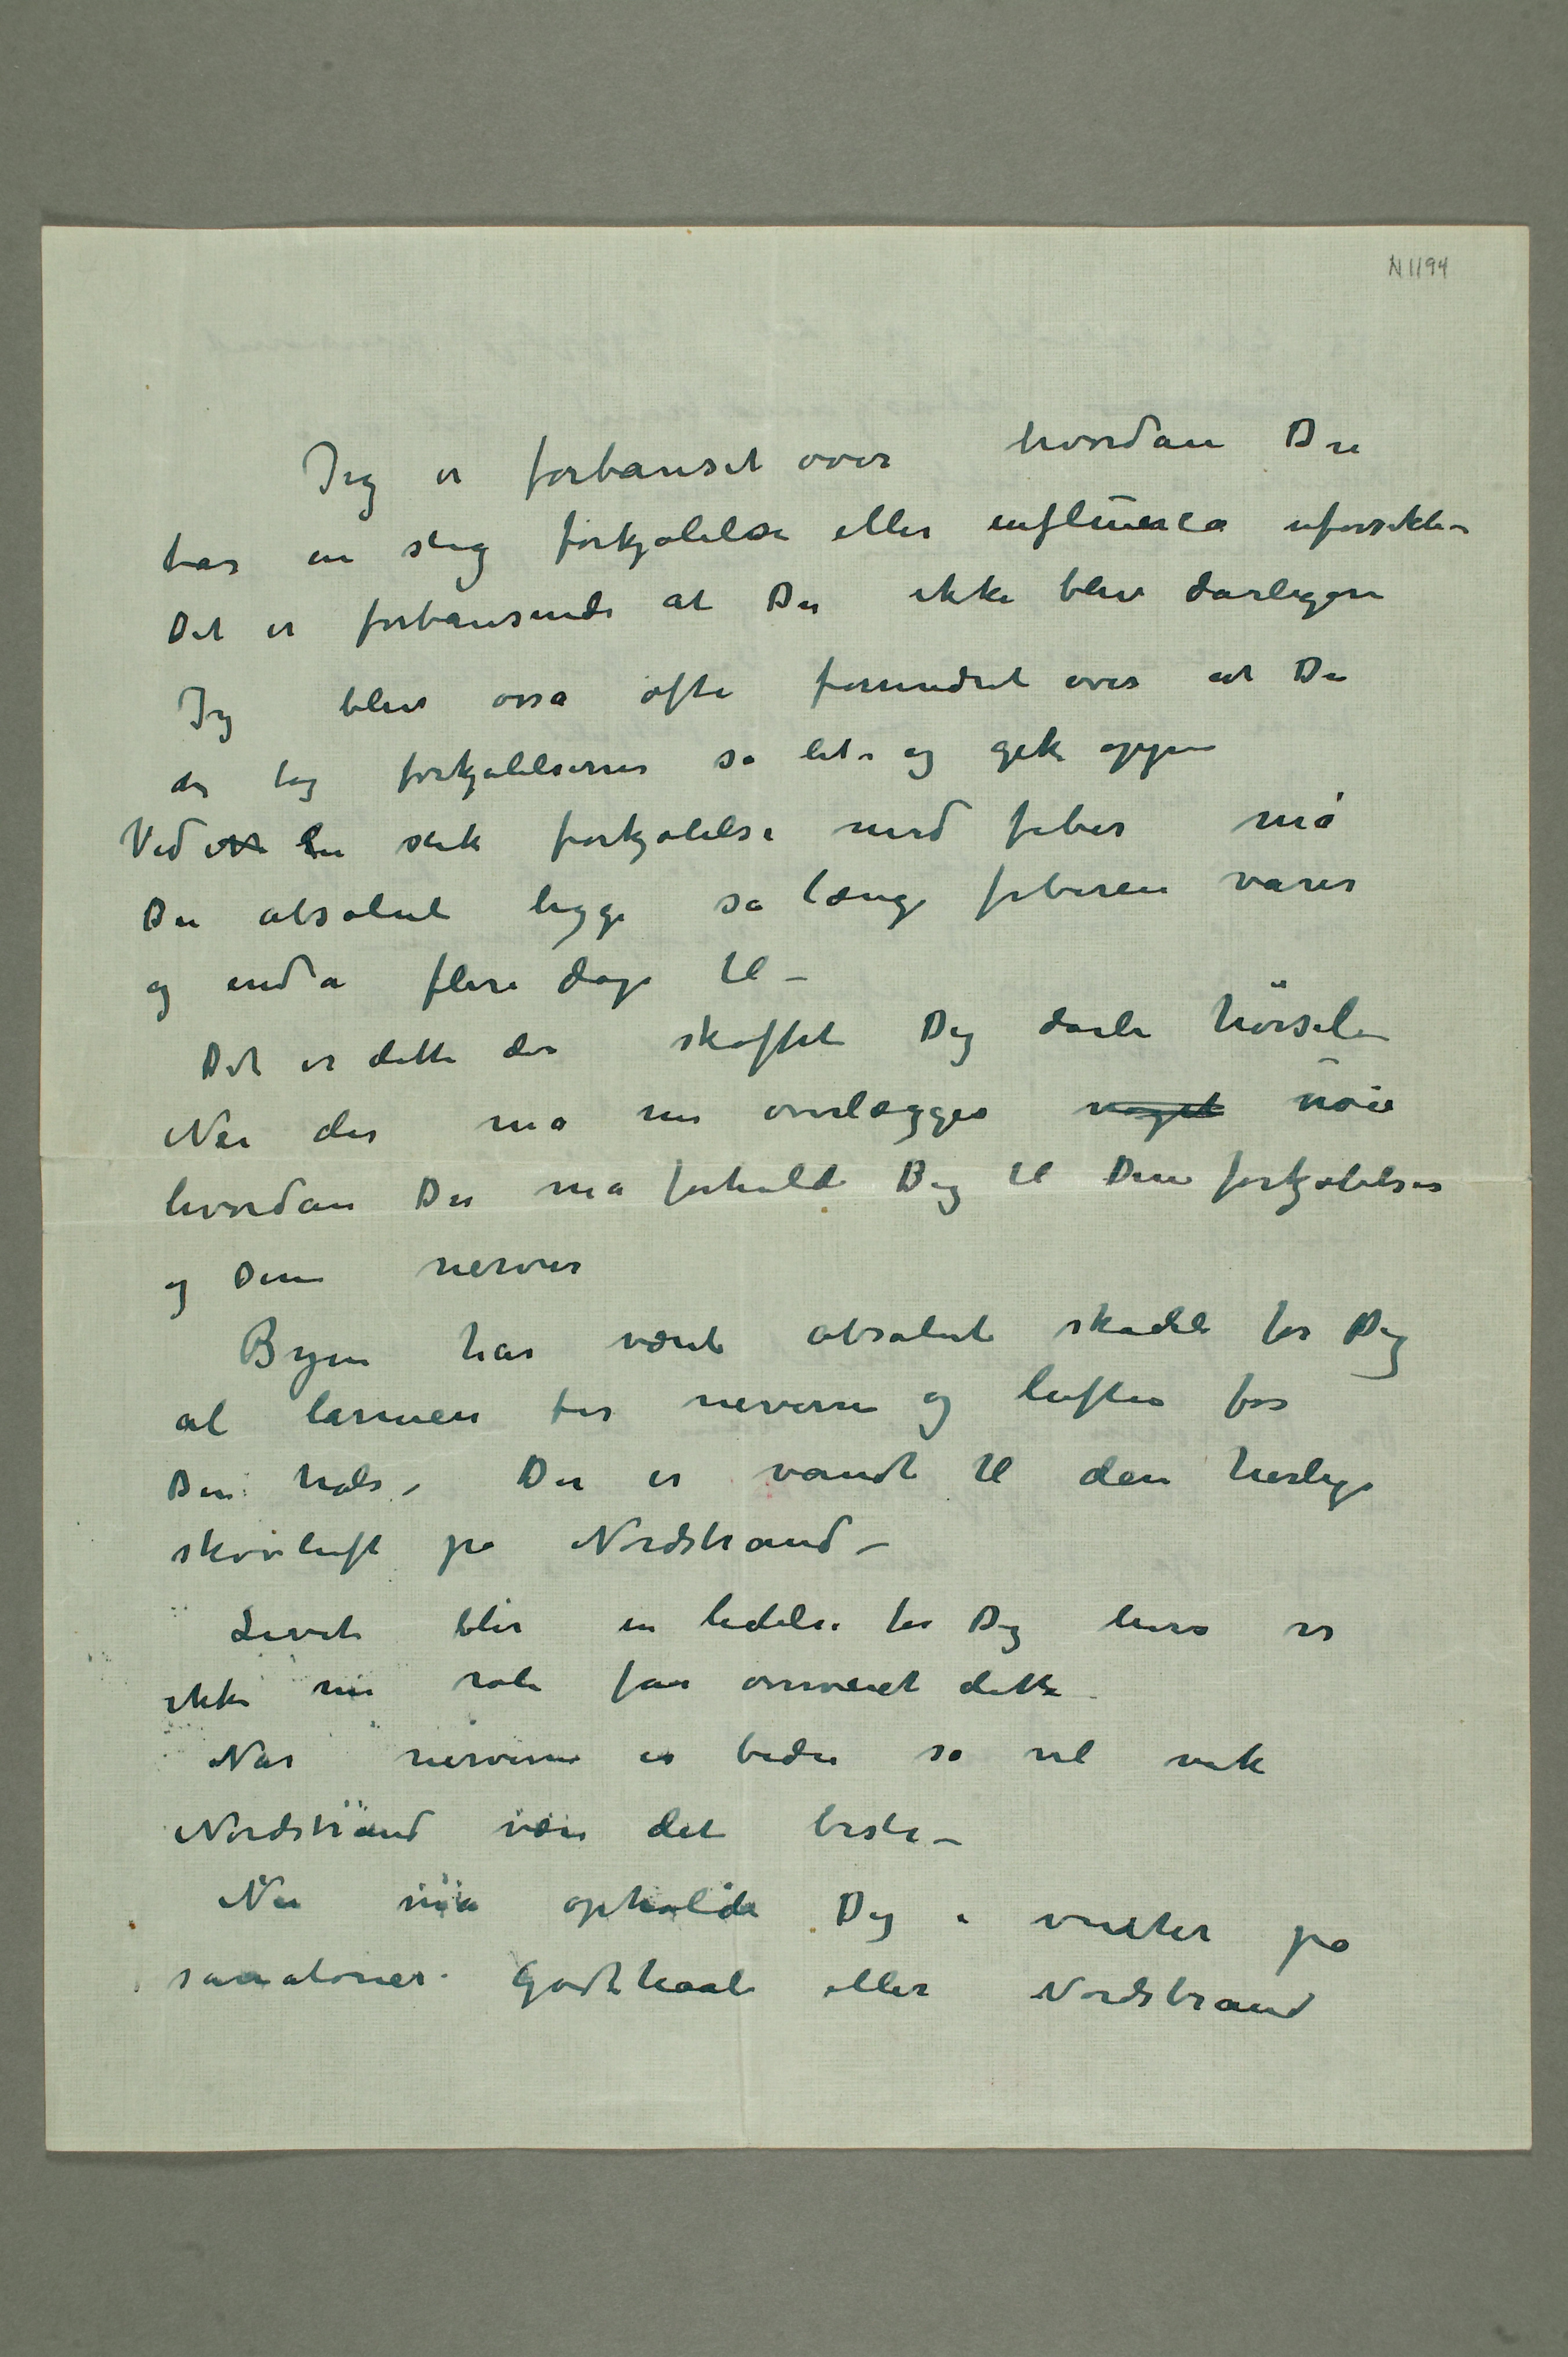 N 1194
Jeg er forbauset over hvordan Du
tar en slig forkjølelse eller influenca uforsikti
Det er forbausende at Du ikke blev dårligere
Jeg blev osså ofte forundret over at Du
der tog forkjølelserne så let og gik oppe
Ved en slik forkjølelse med feber må
Du absolut ligge så længe feberen varer
og enda flere dage til –
Det er dette der skaffet Dig dårli hørsel
Nu der må nu overlægges noget nøie
hvordan Du må forholde Dig til Dine forkjølelser
og Dine nerver
Byen har været absolut skadeli for Dig
al larmen for nerverne og luften for
Din hals – Du er vandt til den herlige
skovluft på Nordstrand –
Livet blir en lidelse for Dig hvis vi
ikke nu råli får overveiet dette
Når nerverne er bedre så vil nok
Nordstrand være det beste –
Nu må opholde Dig i vinter på
sanatorier Godthaab eller Nordstrand